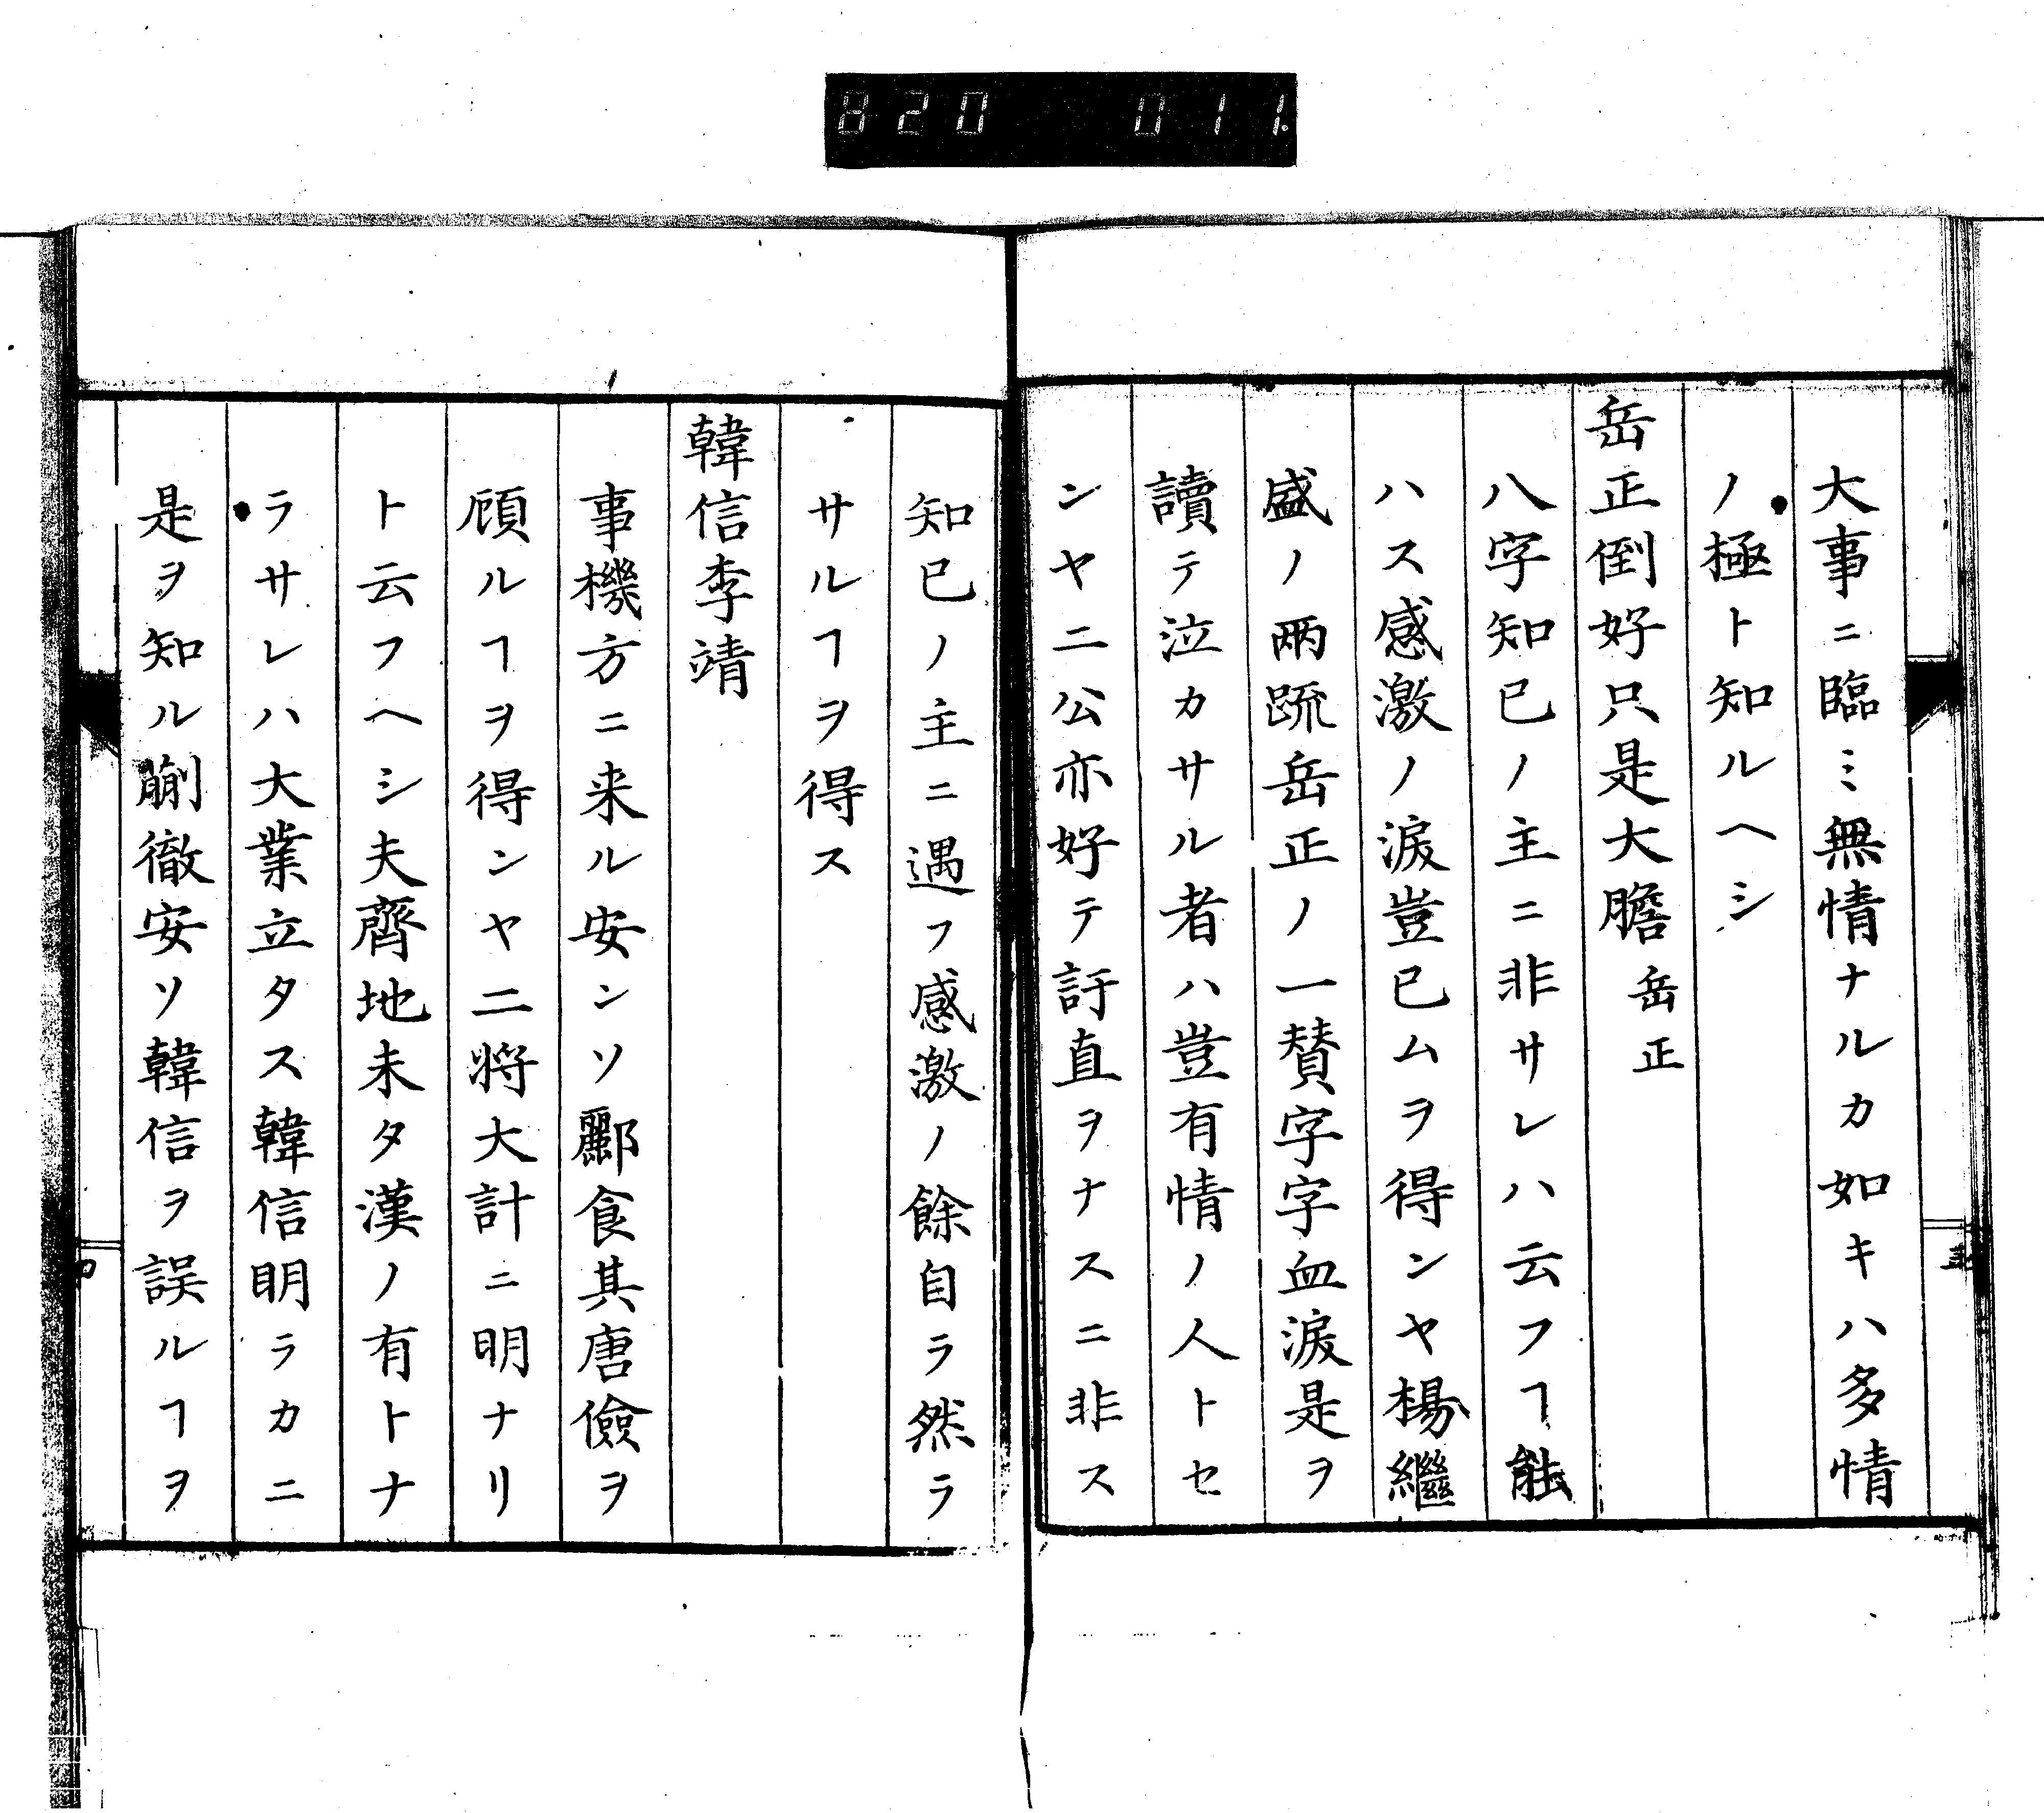 820 011
大事ニ臨ミ無情ナルカ如キハ多情
ノ極ト知ルヘシ
岳正倒好只是大膽 岳正
八字知已ノ主ニ非サレハ云フヿ能
ハス感激ノ涙豈已ムヲ得ンヤ楊繼
盛ノ兩疏岳正ノ一賛字字血涙是ヲ
讀テ泣カサル者ハ豈有情ノ人トセ
ンヤ二公亦好テ訐直ヲナスニ非ス
知已ノ主ニ遇フ感激ノ餘自ラ然ラ
サルヿヲ得ス
韓信李靖
事機方ニ来ル安ンソ酈食其唐儉ヲ
顧ルヿヲ得ンヤ二将大計ニ明ナリ
ト云フヘシ夫齊地未タ漢ノ有トナ
ラサレハ大業立タス韓信明ラカニ
是ヲ知ル蒯徹安ソ韓信ヲ誤ルヿヲ